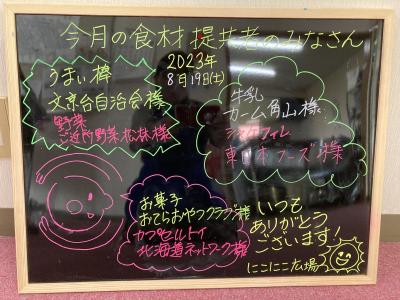 今月の食材提供者のみなさん
2023年
8月19日(土)
うまい棒
文京台自治会様
野菜
ご近所野菜 松林様
牛乳
カーム角山様
シマフィレ
東日本フーズ様
お菓子
おてらおやつクラブ様
カプセルトイ
北海道ネットワーク様
いつも
ありがとう
ございます!
にこにこ広場